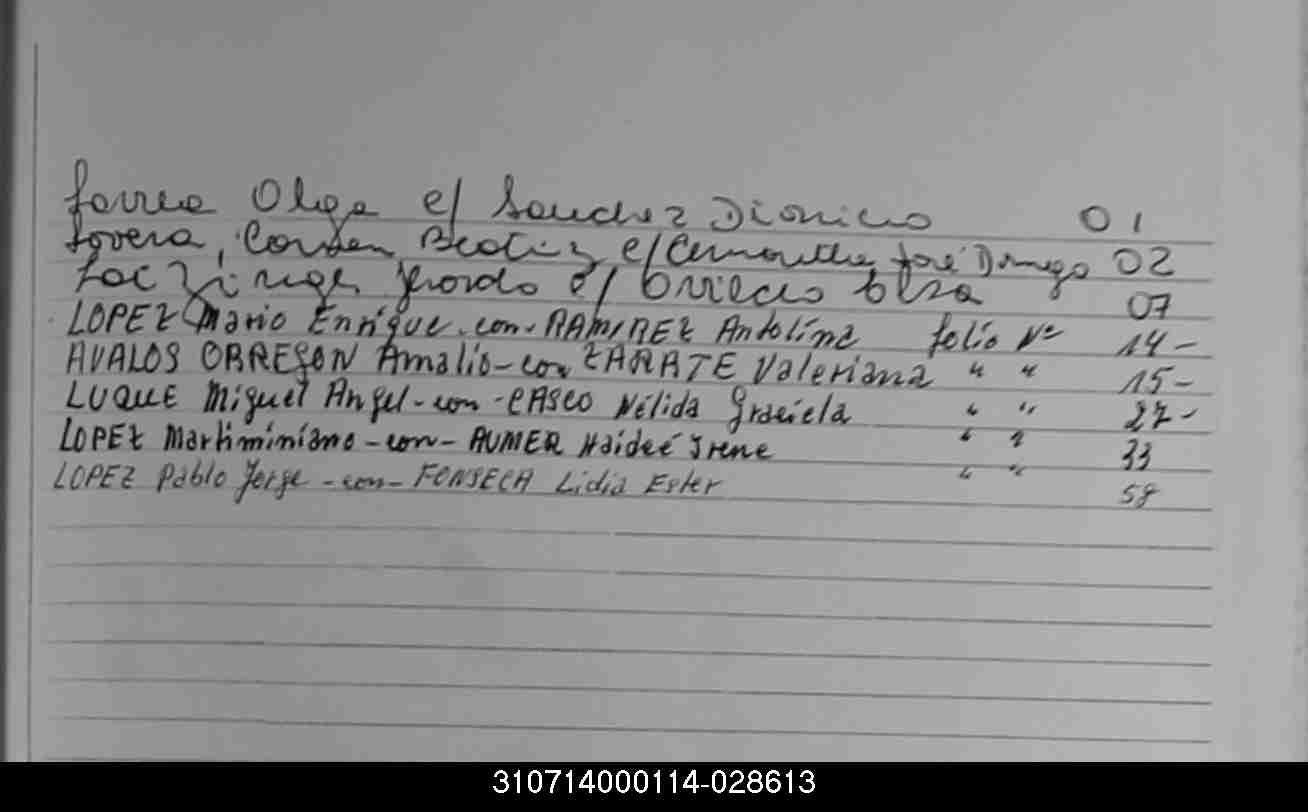 Larrea Olga c/ Sanchez Dionicio 01
Lovera, Carmen Beatriz c/ José Domingo 02
c/ 07
LOPEZ Mario Enrique-con-RAMIREZ Antolina folio Nº 14-
AVALOS OBREGON Amalio-con ZARATE Valeriana " " 15-
LUQUE Miguel Angel-con-CASCO Nélida Graciela " " 27-
LOPEZ Martiminiano-con-AUMER Haideé Irene " " 33
LOPEZ Pablo Jorge-con-FONSECA Lidia Ester " " 58
310714000114-028613